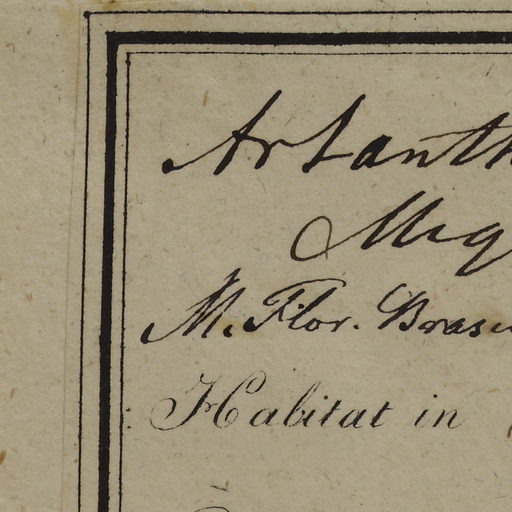 Artanth
Miq
M. Flor. Brasi
Habitat in